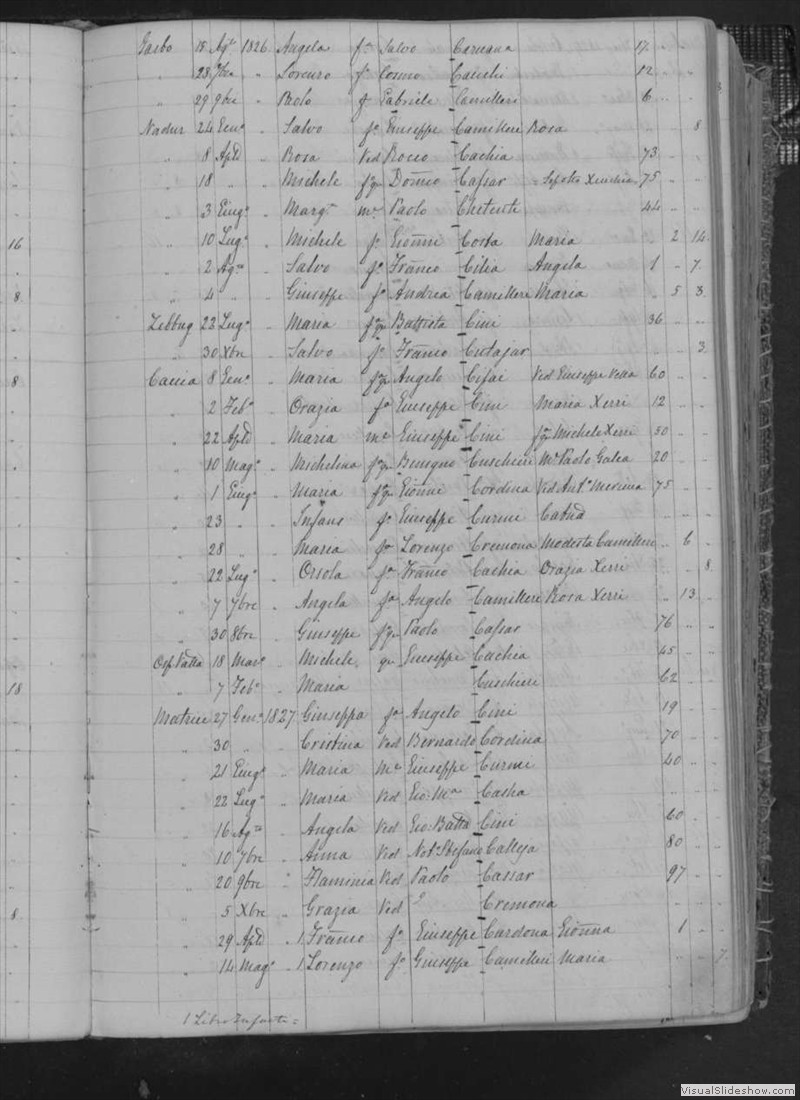 Garbo 15 Agto 1826 Angela fa Salvo Caruana 17
" 23 7bre " Lorenzo fo Cosmo Cauchi 12
" 29 9bre " Paolo f Gabriele Camilleri 6
Nadur 24 Geno " Salvo fo Giuseppe Camilleri Rosa " " 8
" 8 Aple " Rosa Ved Rocco Cachia 73
" 18 " " Michele fqm Domco Cassar Sepolto Xeuchia 75
" 3 Giugo " Marga me Paolo Chetcuti 44
" 10 Lugo " Michele fo Gionni Costa Maria " 2 14
" 2 Agto " Salvo fo Franco Cilia Angela 1 " 7
" 4 " " Giuseppe fo Andrea Camilleri Maria " 5 3
Zebbug 22 Lugo " Maria fqm Battista Cini 36
" 30 Xbre " Salvo fo Franco Cutajar " " 3
Caccia 8 Geno " Maria fqm Angelo Cifai Ved Giuseppe Vella 60
" 2 Febo " Orazia fa Giuseppe Cini Maria Xerri 12
" 22 Aple " Maria me Giuseppe Cini fqm Michele Xerri 50
" 10 Mago " Michelina fqm Benigno Cuschieri Me Paolo Galea 20
" 1 Giugo " Maria fqm Gionni Cordina Ved Anto 75
" 23 " " Infans fo Giuseppe Curmi Catna
" 28 " " Maria fa Lorenzo Cremona Modesta Camilleri " 6
" 22 Lugo " Orsola fa Franco Cachia Orazia Xerri " " 8
" 7 7bre " Angela fa Angelo Camilleri Rosa Xerri " 13
" 30 8bre " Giuseppe fqm Paolo Cassar 76
18 Maro " Michele qm Giuseppe Cachia 45
" 7 Febo " Maria Cuschieri 62
Matrice 27 Geno 1827 Giuseppa fa Angelo Cini 19
" 30 " " Cristina Ved Bernardo Cordina 70
" 21 Giugo " Maria Me Giuseppe Curmi 40
" 22 Lugo " Maria Ved Gio: Ma
" 16 Agto " Angela Ved Gio: Batta Cini 60
" 10 7bre " Anna Ved Notr Stefano Calleja 80
" 20 9bre " Flaminia Ved Paolo Cassar 97
" 5 Xbre " Grazia Ved Cremona
" 29 Aple " 1 Franco fo Giuseppe Cardona Gionna 1
" 14 Mago " 1 Lorenzo fo Giuseppe Camilleri Maria " " 7
1 Libro Infanti =
16
8
8
18
8
VisualSlideshow.com